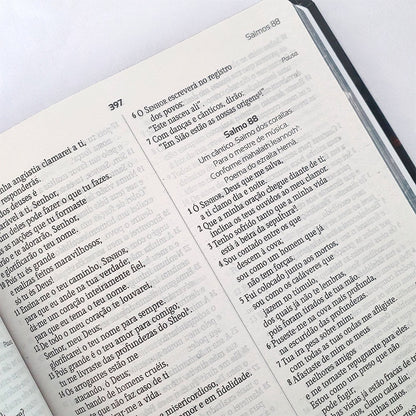 397
Salmos 88
angústia clamarei a ti,
responderás.
deuses é
a ti, Senhor;
deles pode fazer o que tu fazes.
as nações que tu formaste
e te adorarão, Senhor,
e glorificarão o teu nome.
10 Pois tu és grande
e realizas feitos maravilhosos;
só tu és Deus!
11 Ensina-me o teu caminho, SENHOR,
para que eu ande na tua verdade;
dá-me um coração inteiramente fiel,
para que eu tema o teu nome.
12 De todo o meu coração te louvarei,
Senhor, meu Deus;
glorificarei o teu nome para sempre.
13 Pois grande é o teu amor para comigo;
tu me livraste das profundezas do Sheol.
14 Os arrogantes estão me
atacando, ó Deus;
um bando de homens cruéis,
que não faz caso de ti
misericordioso,
amor e em fidelidade.
6 O SENHOR escreverá no registro
dos povos:
"Este nasceu ali".
Pausa
7 Com danças e cânticos, dirão:
"Em Sião estão as nossas origens!"
Salmo 88
Um cântico. Salmo dos coraítas.
Para o mestre de música.
Conforme mahalath leannoth.
Poema do ezraíta Hemã.
1 Ó SENHOR, Deus que me salva,
a ti clamo dia e noite.
2 Que a minha oração chegue diante de ti;
inclina os teus ouvidos ao meu clamor.
3 Tenho sofrido tanto que a minha vida
está à beira da sepultura!
4 Sou contado entre os que
descem à cova;
sou como um homem que já
não tem forças.
5 Fui colocado junto aos mortos,
sou como os cadáveres que
jazem no túmulo,
dos quais já não te lembras,
pois foram tirados de tua mão.
6 Puseste-me na cova mais profunda,
na escuridão das profundezas.
7 Tua ira pesa sobre mim;
com todas as tuas ondas me afligiste.
8 Afastaste de mim os meus
melhores amigos
e me tornaste repugnante para eles.
Estou como um preso que não